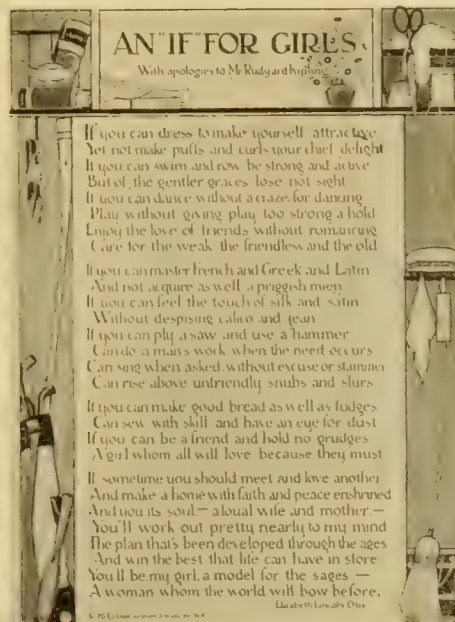 AN "IF" FOR GIRLS
With apologies to Mr. Rudyard Kipling
If you can dress to make yourself attractive
Yet not make puffs and curls your chief delight
If you can swim and row be strong and active
But of the gentler graces lose not sight
If you can dance without a craze for dancing
Play without giving play too strong a hold
Enjoy the love of friends without romancing
Care for the weak the friendless and the old
If you can master French and Greek and Latin
And not acquire as well a priggish mien
If you can feel the touch of silk and satin
Without despising calico and jean
If you can ply a saw and use a hammer
Can do a man's work when the need occurs
Can sing when asked, without excuse or stammer
Can rise above unfriendly snubs and slurs
If you can make good bread as well as fudges
Can sew with skill and have an eye for dust
If you can be a friend and hold no grudges
A girl whom all will love because they must
If sometime you should meet and love another
And make a home with faith and peace enshrined
And you its soul— a loyal wife and mother—
You'll work out pretty nearly to my mind
The plan that's been developed through the ages
And win the best that life can have in store
You'll be my girl, a model for the sages —
A woman whom the world will bow before.
Elizabeth Lincoln Otis